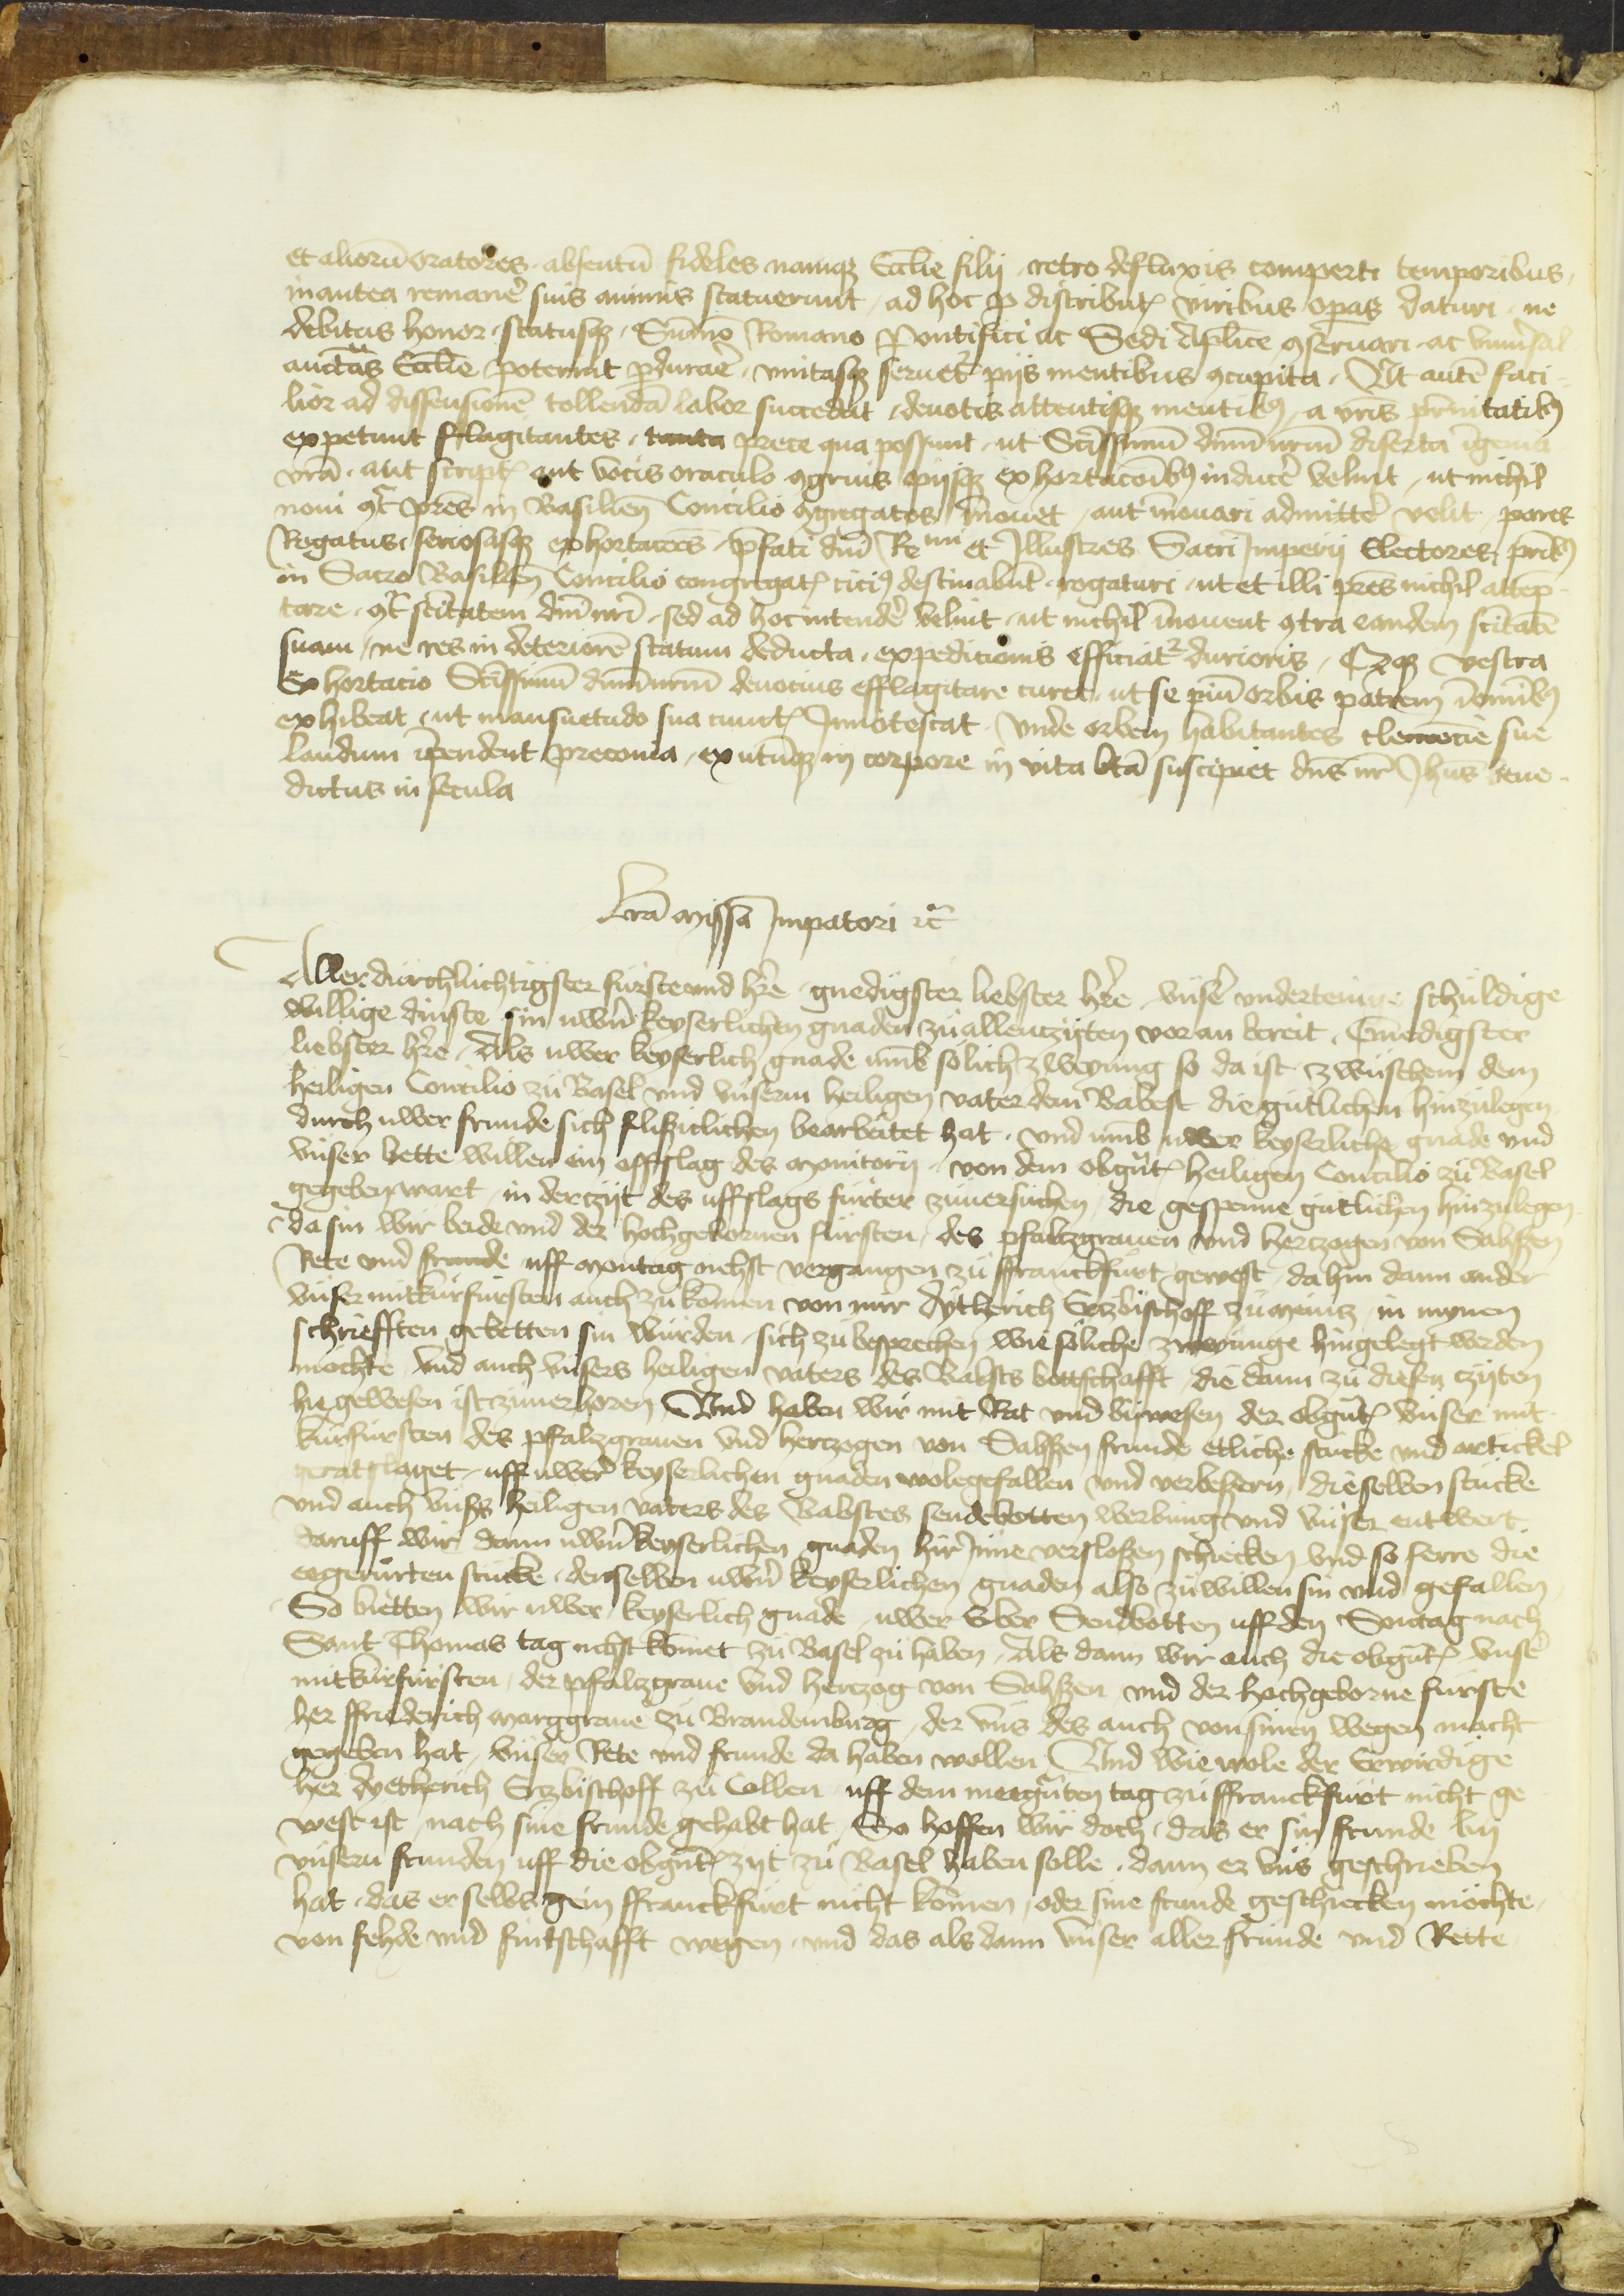 et aliorū oratores absentū fideles namqꝫ Ecclie filij retro defluxis comperti temporibus
inantea remanē suis animis statuerunt ad hoc p distributꝭ viribus opas daturi ne
debitus honor statusqꝫ Sūmo Romano Pontifici ac Sedi Aplice ꝯseruari ac vniu̾sal
auctās Ecclie poterint ꝑdurare vnitasqꝫ seruet̾ pijs mentibus ꝯcupita Vt autē faci
lior ad dissensionē tollendā labor succedat deuotis attentisqꝫ mentibꝰ a vr̄is pr̄nitatibꝰ
expetunt fflagitantes tanta prece qua possunt ut Sctīssimū dnm̄ nrm̄ diserta
vr̄a aut scriptꝭ aut vocis oraculo ꝯgruis pijsqꝫ exhortacoībꝰ inducē velint ut nichil
noui ꝯt̄ pr̄es in Basilien̄ Concilio ꝯgregatos īnouet aut īnouari admittē velit pares
Rogatus seriosasqꝫ exhortacoēs p̄fati dnī Reuᵐⁱ et Illustres Sacri Imperij Electores pr̄ibꝰ
in Sacro Basilien̄ Concilio congregatꝭ ciciꝰ destinabūt rogaturi ut et illi pr̄es nichil attēp
tare ꝯt̄ sctitatem dnī nrī sed ad hoc intendē velint ut nichil īnouent ꝯtra eandem sctitatē
suam ne res in deteriorē statum deducta expedicionis efficiat᷑ durioris vestra
Exhortacio Sctīssimū dnm̄ nrm̄ deuocius efflagitare curet ut se piū orbis patrem ī omībꝰ
exhibeat ut mansuetudo sua cunctꝭ Innotescat Vnde orbem habitantes clemēcie sue
laudum īpendent preconia exutūqꝫ in corpore in vita btā suscipiet dn̄s nr̄ Jhūs bene
dictus in secula

Lr̄a missa Impatori ⁊c̄

Allerdurchluchtigster furste vnd h̾re gnedigster liebster h̾re vnser̾ vnderteinige schuldige
willige dinste sin uwrn̄ keyserlichen gnaden zu allenczijten vor an bereit Gnedigster
liebster h̾re Als uwer keyserlich gnade vmb solich zweyung so da ist zwuschem dem
heiligen Concilio zu Basel vnd vnserm heiligen vater dem Babest die gutlichen hinzulegen
durch uwer frunde sich fliszlichen bearbeitet hat vnd vmb uwer keyserliche gnade vnd
vnser bette willen ein offslag des monitorij von dem obgn̄tꝭ heiligen Concilio zu Basel
gegeben wart in der czijt des uffslags furter zuuersuchen die gespenne gutlichen hinzulegen
da sin wir beide vnd der hochgebornen fursten des pfaltzgrauen vnd herczogen von Sahszen
Rete vnd frunde uff montag nehst vergangen zu ffranckfurt gewest dahin dann ander
vnser mitkurfursten auch zu komen von mir dytherich Ertzbischoff zu meincz in mynen
schriefften gebetten sin wurden sich zu besprechen wie soliche zweyunge hingelegt werden
mochte vnd auch vnsers heiligen vaters des Babsts bottschafft die dann zu diesen czijten
hie gewesen ist zuuerhoren Vnd haben wir mit Rat vnd bijwesen der obgn̄tꝭ vnser mit
kurfursten des pfaltzgrauen vnd herczogen von Sahszen frunde etliche stucke vnd artickel
geratslaget uff uwer̾ keyserlichen gnaden wolegefallen vnd verbeszern dieselben stucke
vnd auch vnsers heiligen vaters des Babstes sendebotten werbung vnd vnser entwert
daruff wir dann uwrn̄ keyserlichen gnaden hir Inne verslossen schicken vnd so ferre die
eegerurten stucke denselben uwrn̄ keyserlichen gnaden also zu willen sin vnd gefallen
So bietten wir uwer keyserlich gnade uwer Erber Sendbotten uff den Sontag nach
Sant Thomas tag nehst komet zu Basel zu haben Als dann wir auch die obgn̄tꝭ vnser̾
mitkurfursten der pfaltzgraue vnd herczog von Sahszen vnd der hochgeborne furste
her ffriederich marggraue zu Brandemburg der vns des auch von sinen wegen macht
gegeben hat vnser Rete vnd frunde da haben wollen Vnd wie wole der Erwirdige
her dyetherich Ertzbischoff zu Collen uff dem meegn̄ten tag zu ffranckfurt nicht ge
west ist nach sine frunde gehabt hat So hoffen wir doch das er sin frunde bij
vnsern frunden uff die obgn̄tꝭ zijt zu Basel haben solle dann er vns geschrieben
hat das er selbs gein ffranckfurt nicht komen oder sine frunde geschicken mochte
von fehde vnd fintschafft wegen vnd das als dann vnser aller frunde vnd Rette